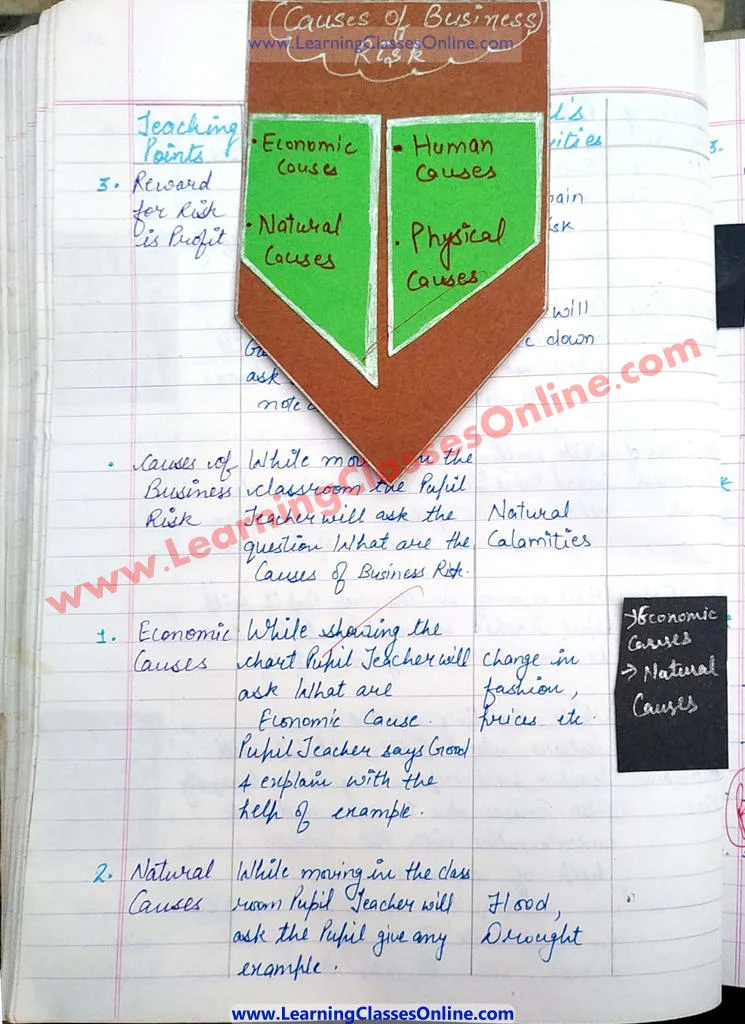 Causes of Business
www.LearningClassesOnline.com
Risk
• Economic
Causes
• Natural
Causes
• Human
Causes
• Physical
Causes
Teaching
Points
3. Reward
for Risk
is Profit
will
down
ask
note
• Causes of
Business
Risk
While mov the
classroom the Pupil
Teacher will ask the
question What are the
Causes of Business Risk.
Natural
Calamities
www.LearningClassesOnline.com
1. Economic
Causes
While showing the
chart Pupil Teacher will
ask What are
Economic Cause.
Pupil Teacher says Good
& explain with the
help of example.
change in
fashion,
prices etc.
→ Economic
Causes
→ Natural
Causes
2. Natural
Causes
While moving in the class
room Pupil Teacher will
ask the Pupil give any
example.
Flood,
Drought
3.
www.LearningClassesOnline.com